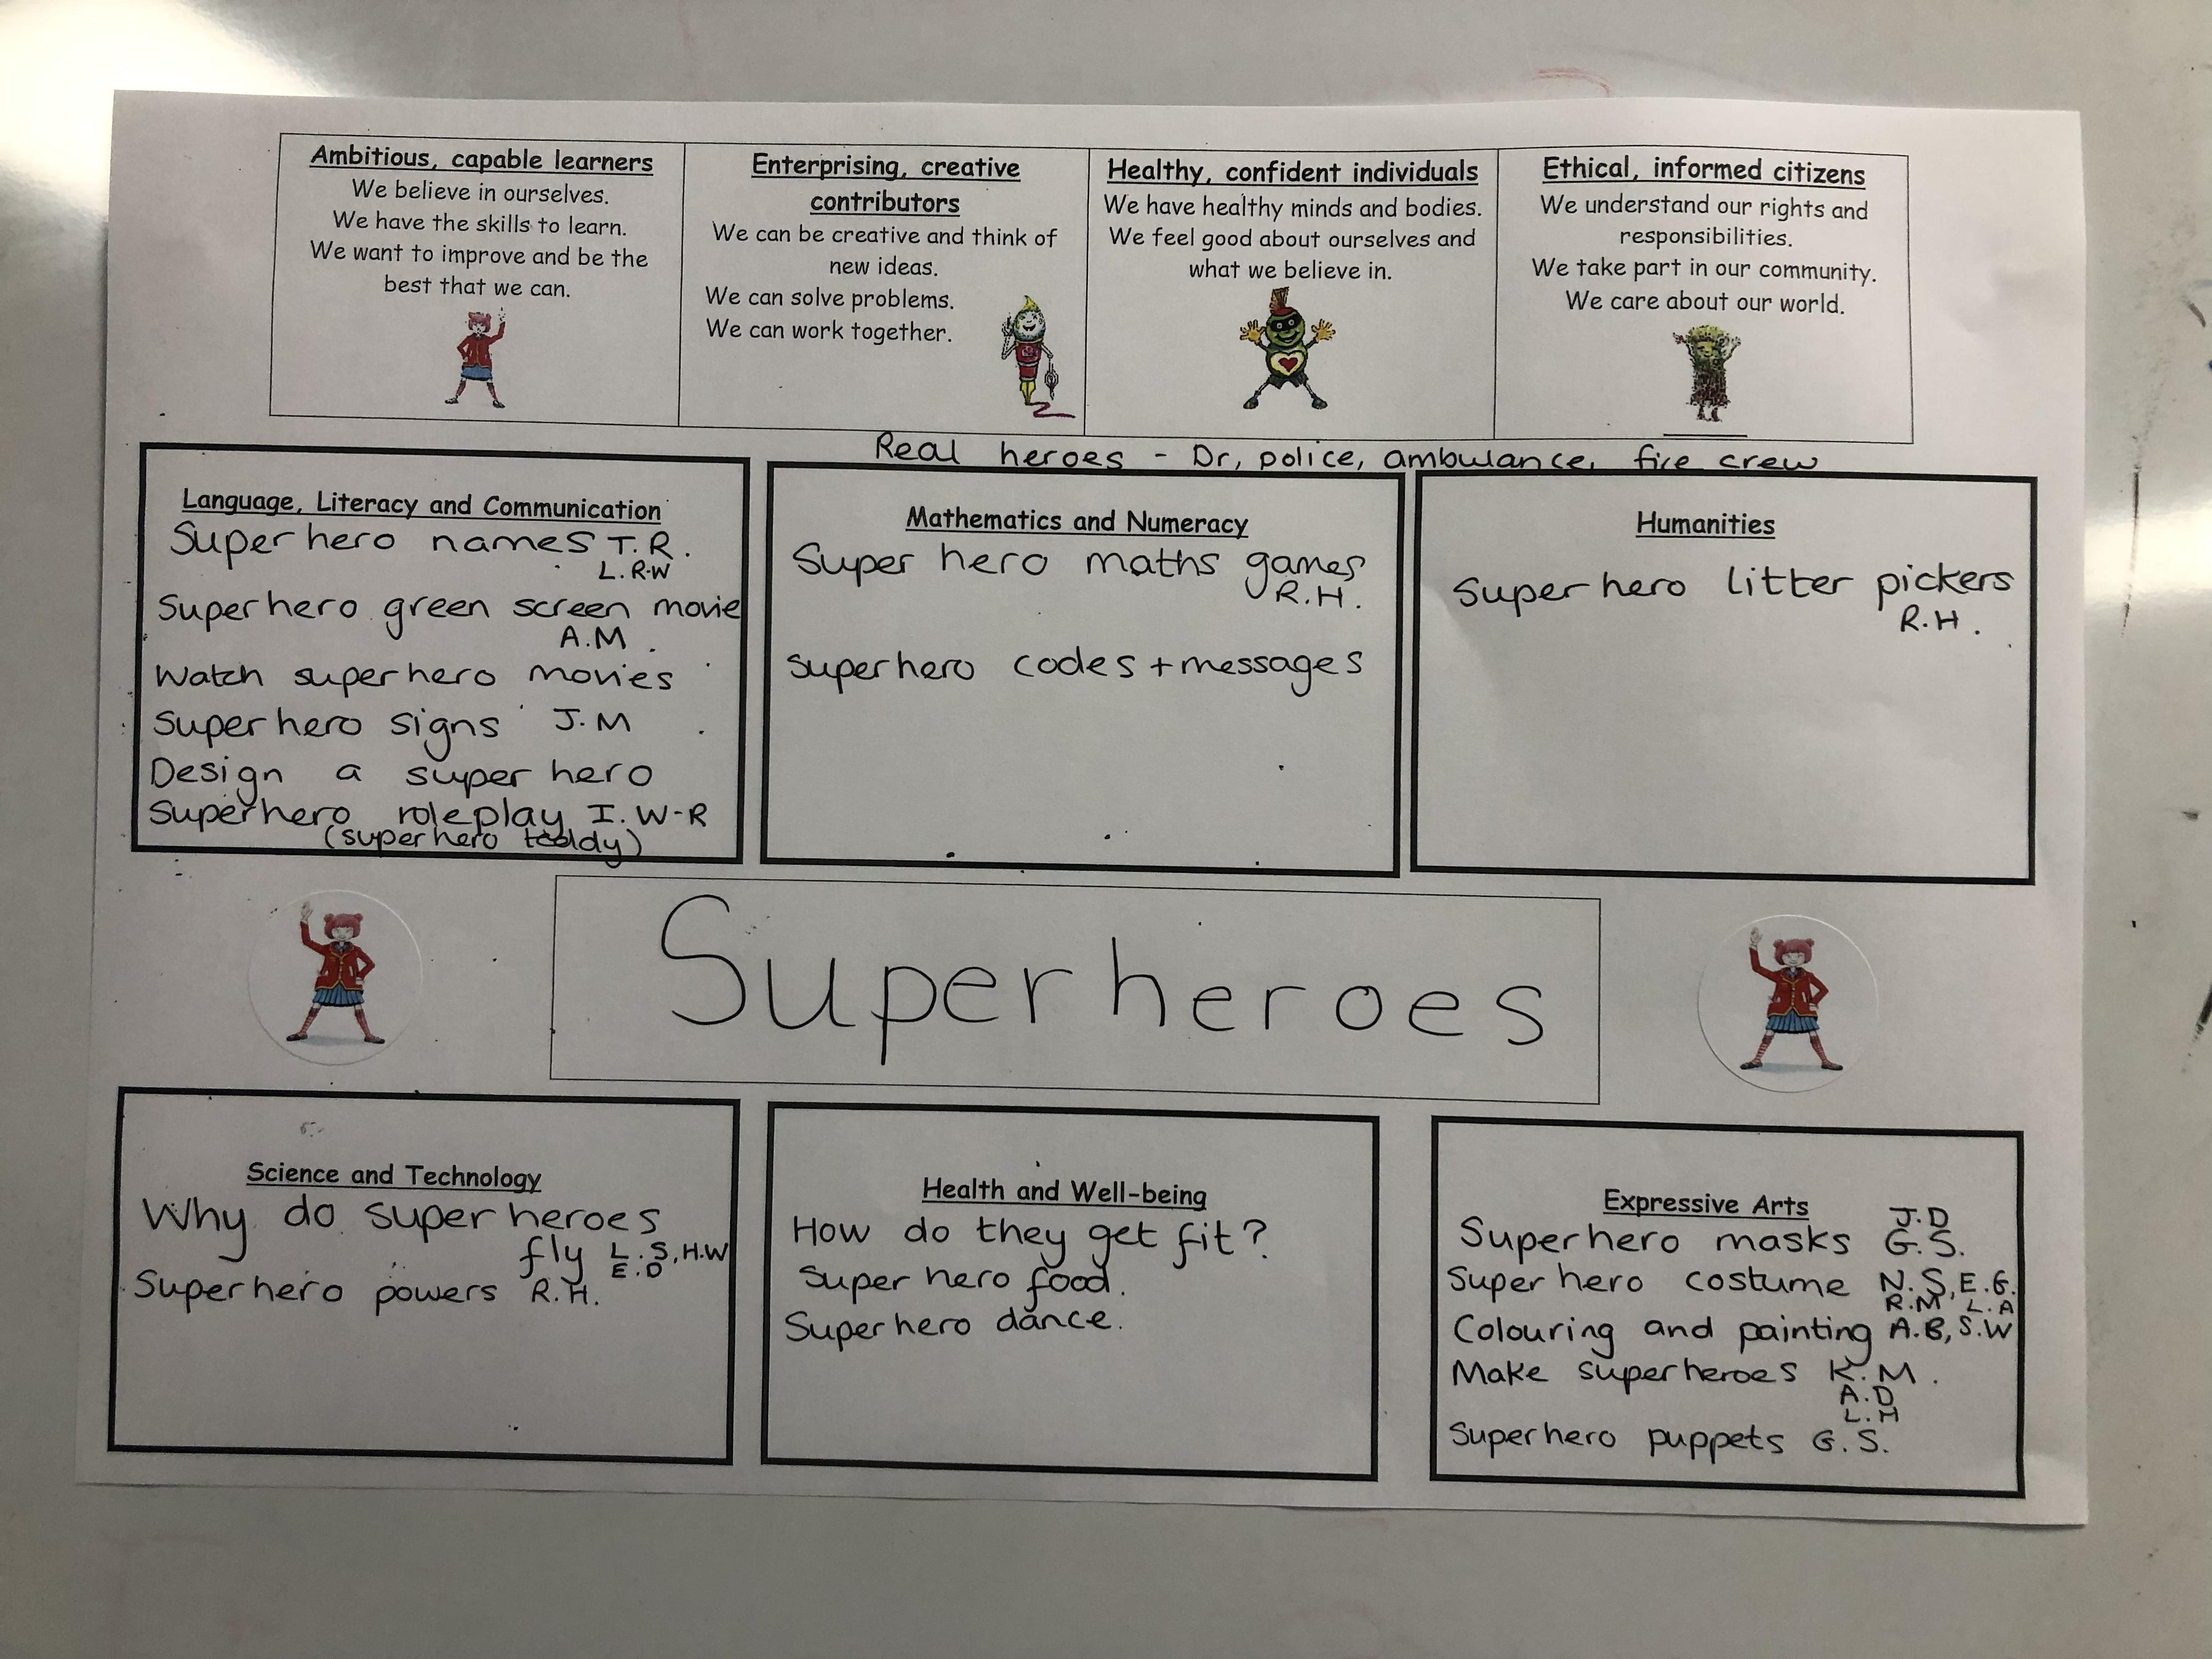 Ambitious, capable learners
We believe in ourselves.
We have the skills to learn.
We want to improve and be the
best that we can.
Enterprising, creative
contributors
We can be creative and think of
new ideas.
We can solve problems.
We can work together.
Healthy, confident individuals
We have healthy minds and bodies.
We feel good about ourselves and
what we believe in.
Ethical, informed citizens
We understand our rights and
responsibilities.
We take part in our community.
We care about our world.
Real heroes - Dr, police, ambulance, fire crew
Language, Literacy and Communication
Superhero names T.R.
L.R-W
Superhero green screen movie
A.M.
Watch superhero movies
Superhero signs J.M
Design a super hero
Superhero roleplay I.W-R
(superhero teddy)
Mathematics and Numeracy
Super hero maths games
R.H.
Superhero codes + messages
Humanities
Super hero litter pickers
R.H.
Superheroes
Science and Technology
Why do super heroes
fly L.S, H.W
E.D
Superhero powers R.H.
Health and Well-being
How do they get fit?
Super hero food.
Superhero dance.
Expressive Arts
J.D
Superhero masks G.S.
Super hero costume N.S, E.G.
R.M L.A
Colouring and painting A.B, S.W
Make superheroes K.M.
A.D
L.H
Superhero puppets G.S.